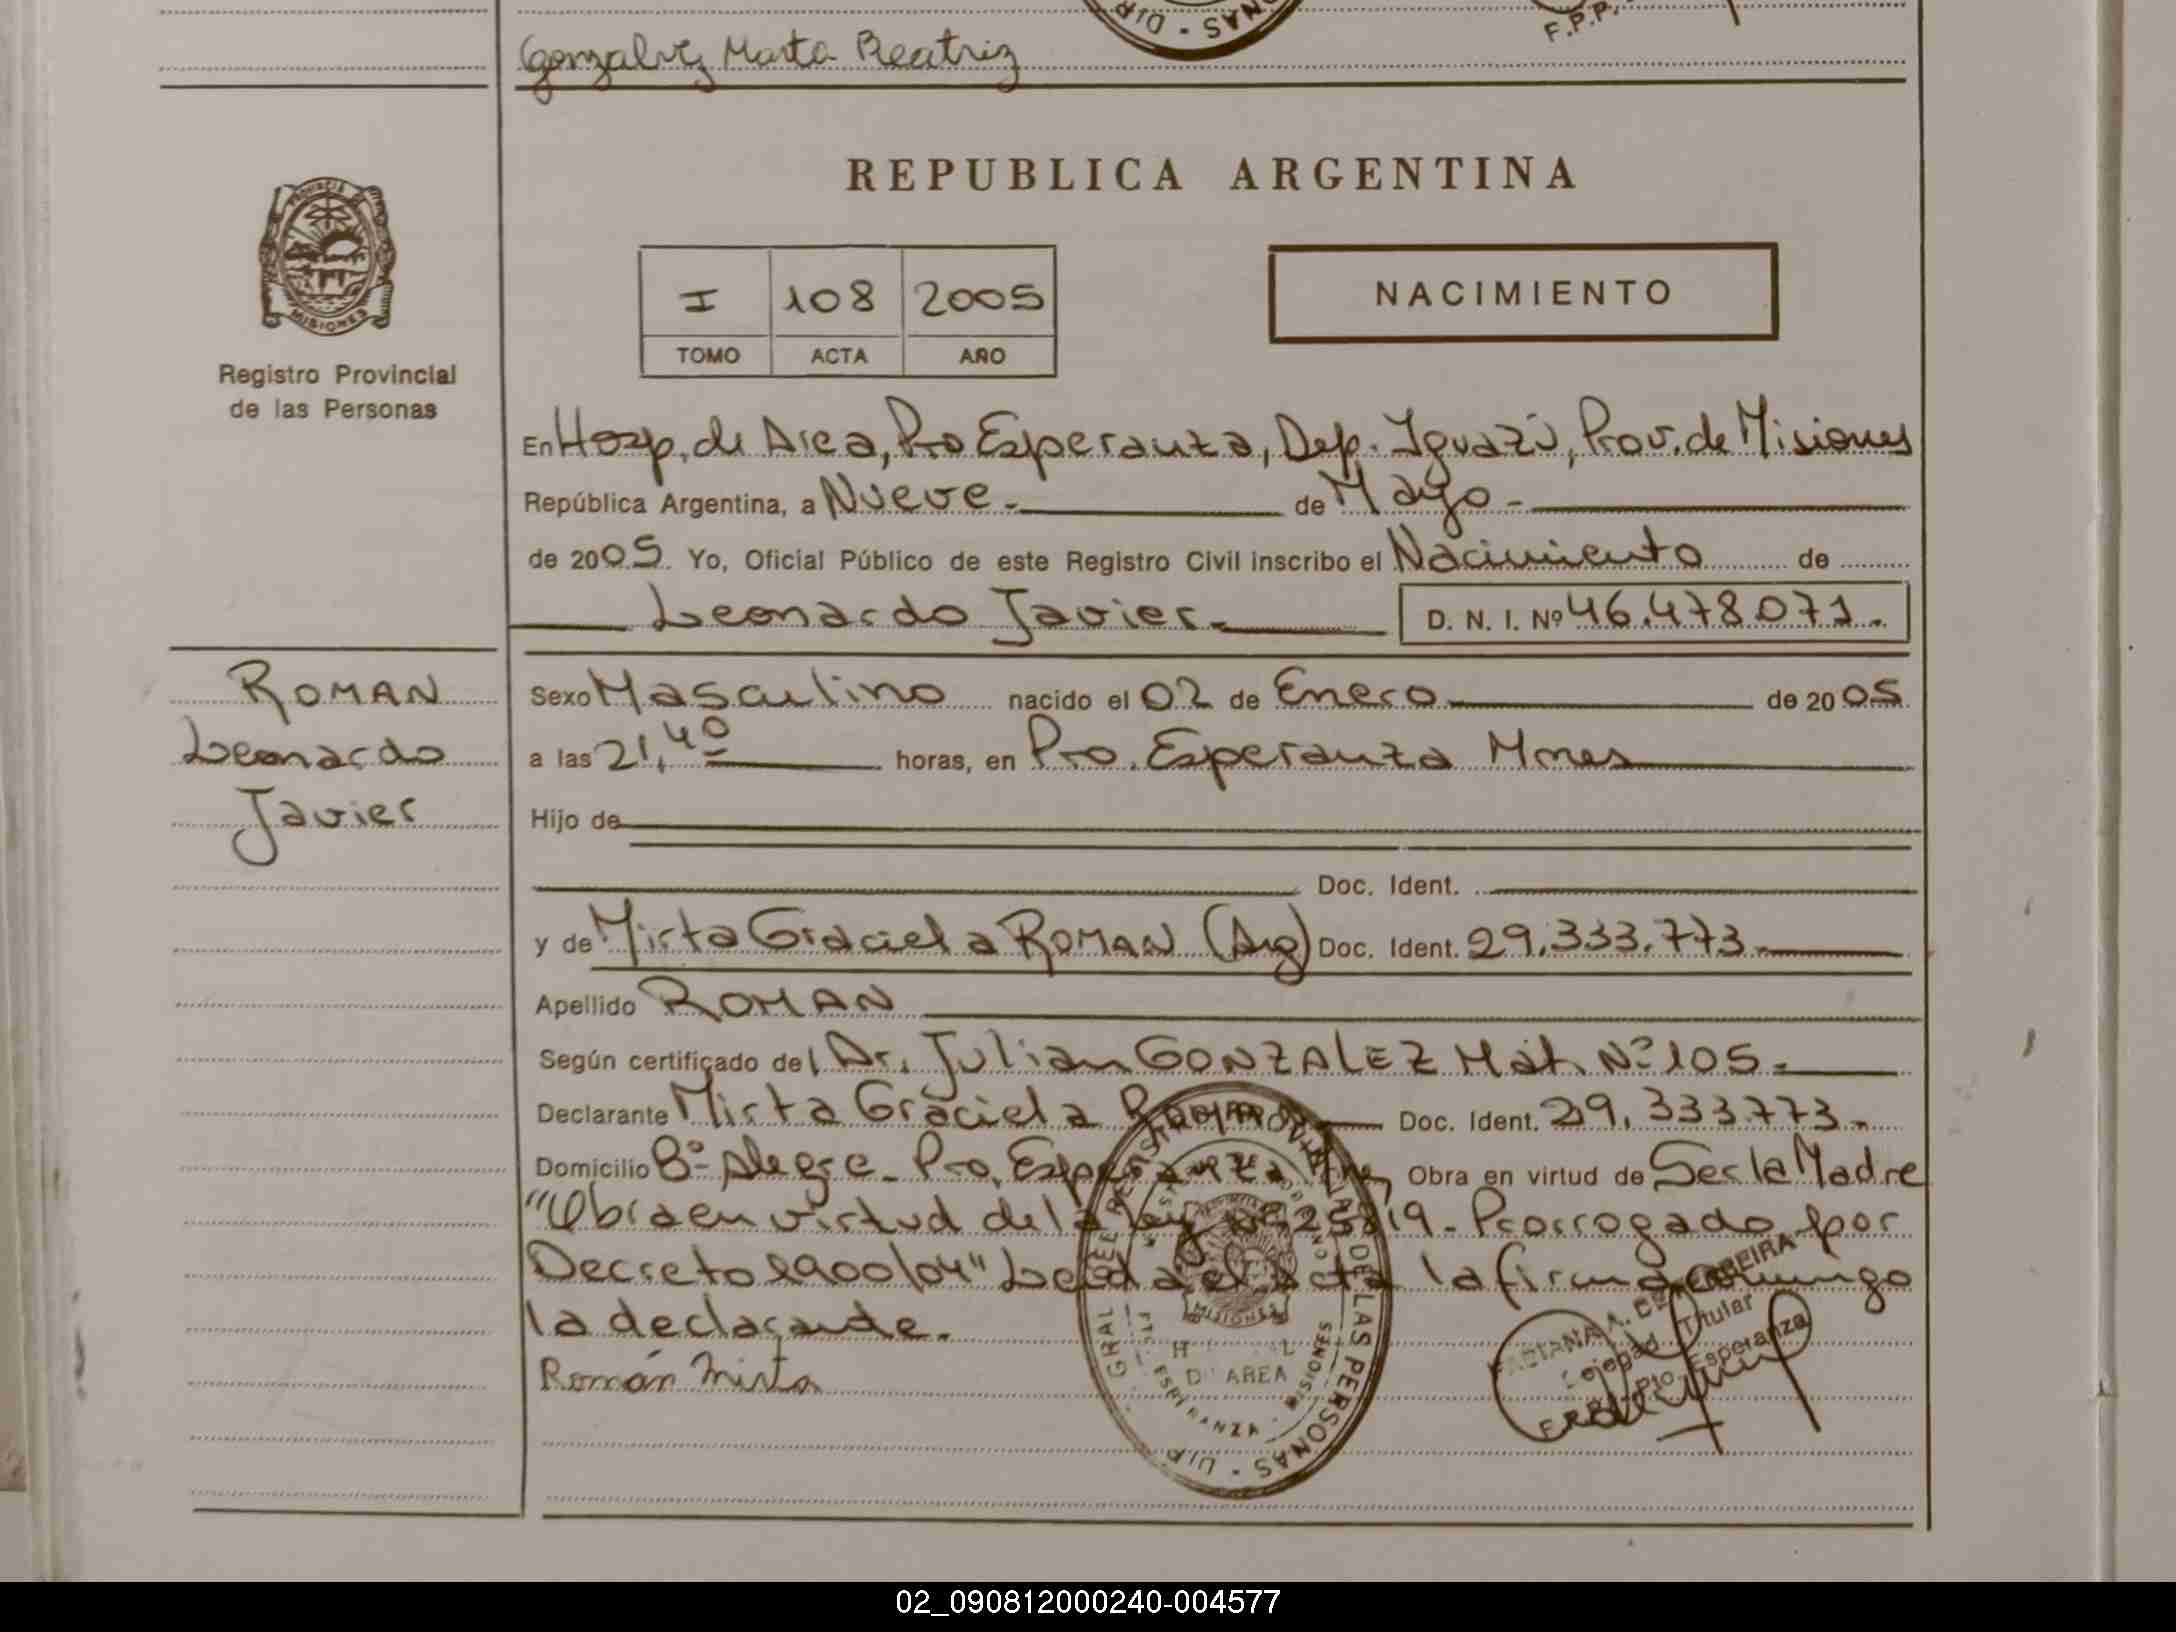 Gonzalvez Marta Beatriz
F.P.P.
DIP
REPUBLICA ARGENTINA
PROVINCIA
MISIONES
Registro Provincial
de las Personas
I 108 2005
TOMO ACTA AÑO
NACIMIENTO
En Hosp. de Area, Pto Esperanza, Dep. Iguazú, Prov. de Misiones
República Argentina, a Nueve.- de Mayo -
de 2005 Yo, Oficial Público de este Registro Civil inscribo el Nacimiento de
Leonardo Javier.- D. N. I. Nº 46.478.071.-
ROMAN
Leonardo
Javier
Sexo Masculino nacido el 02 de Enero de 20 05
a las 21,40 horas, en Pto. Esperanza Mnes
Hijo de
Doc. Ident.
y de Mirta Graciela ROMAN (Arg) Doc. Ident. 29.333.773.-
Apellido ROMAN
Según certificado del Dr. Julian GONZALEZ Mat. Nº 105.-
Declarante Mirta Graciela Roman Doc. Ident. 29.333.773.-
Domicilio Bº Alegre - Pto. Esperanza Mnes Obra en virtud de Ser la Madre
"Obra en virtud de la ley 25819 - Prorrogado por
Decreto 1900/04" Leida el acta la firma conmigo
la declarante.
Román Mirta
DE LAS PERSONAS - DIP
MISIONES
D' AREA
ESPERANZA - MISIONES
Titular
Esperanza
02_090812000240-004577